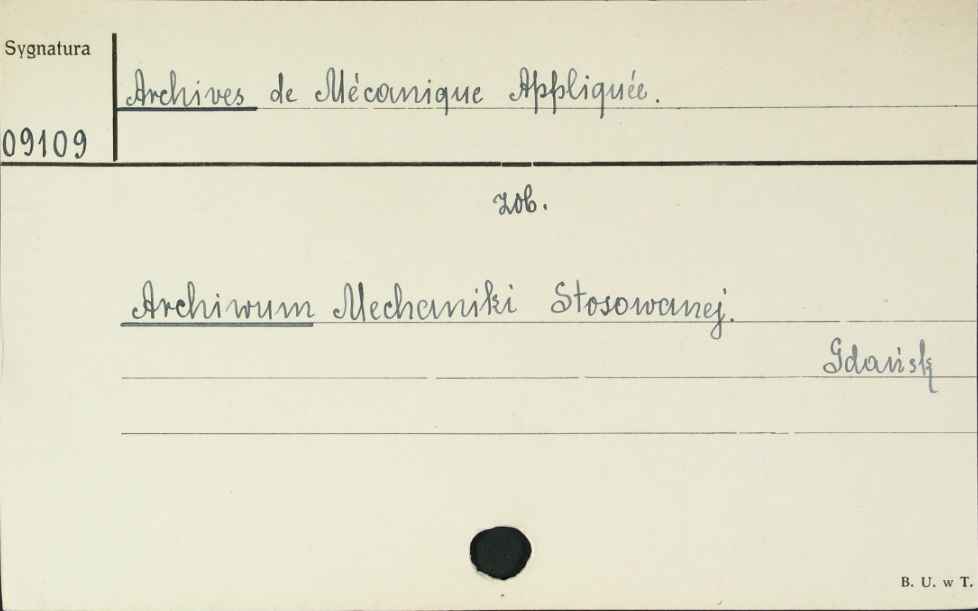 Sygnatura
Archives de Mécanique Appliquée.
09109
zob.
Archiwum Mechaniki Stosowanej.
Gdańsk
B. U. w T.